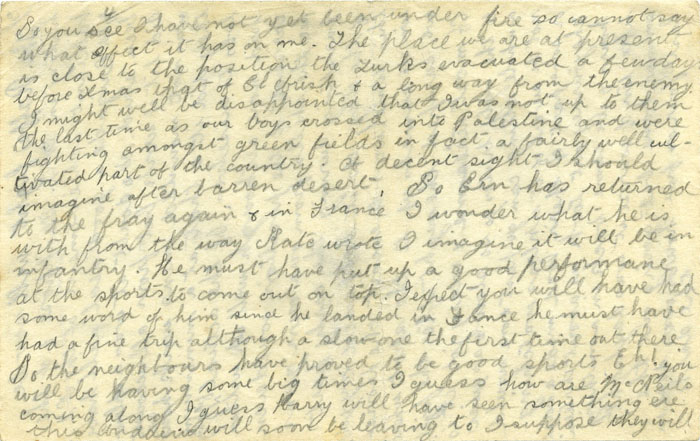 4
So you see I have not yet been under fire so cannot say
what affect it has on me. The place we are at present
is close to the position the Turks evacuated a few days
before Xmas that of El Arish & a long way from the enemy.
I might well be disappointed that I was not up to them
the last time as our boys crossed into Palestine and were
fighting amongst green fields in fact a fairly well cul-
tivated part of the country. A decent sight I should
imagine after barren desert. So Ern has returned
to the fray again & in France I wonder what he is
with from the way Kate wrote I imagine it will be in
infantry. He must have put up a good performane
at the sports to come out on top. I expect you will have had
some word of him since he landed in France he must have
had a fine trip although a slow one the first time out there
So the neighbours have proved to be good sports Eh! you
will be having some big times I guess how are McNeils
coming along I guess Harry will have seen something ere
this will soon be leaving to I suppose they will